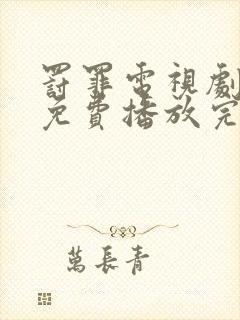 罸罪電視劇
免費播放完
萬長青